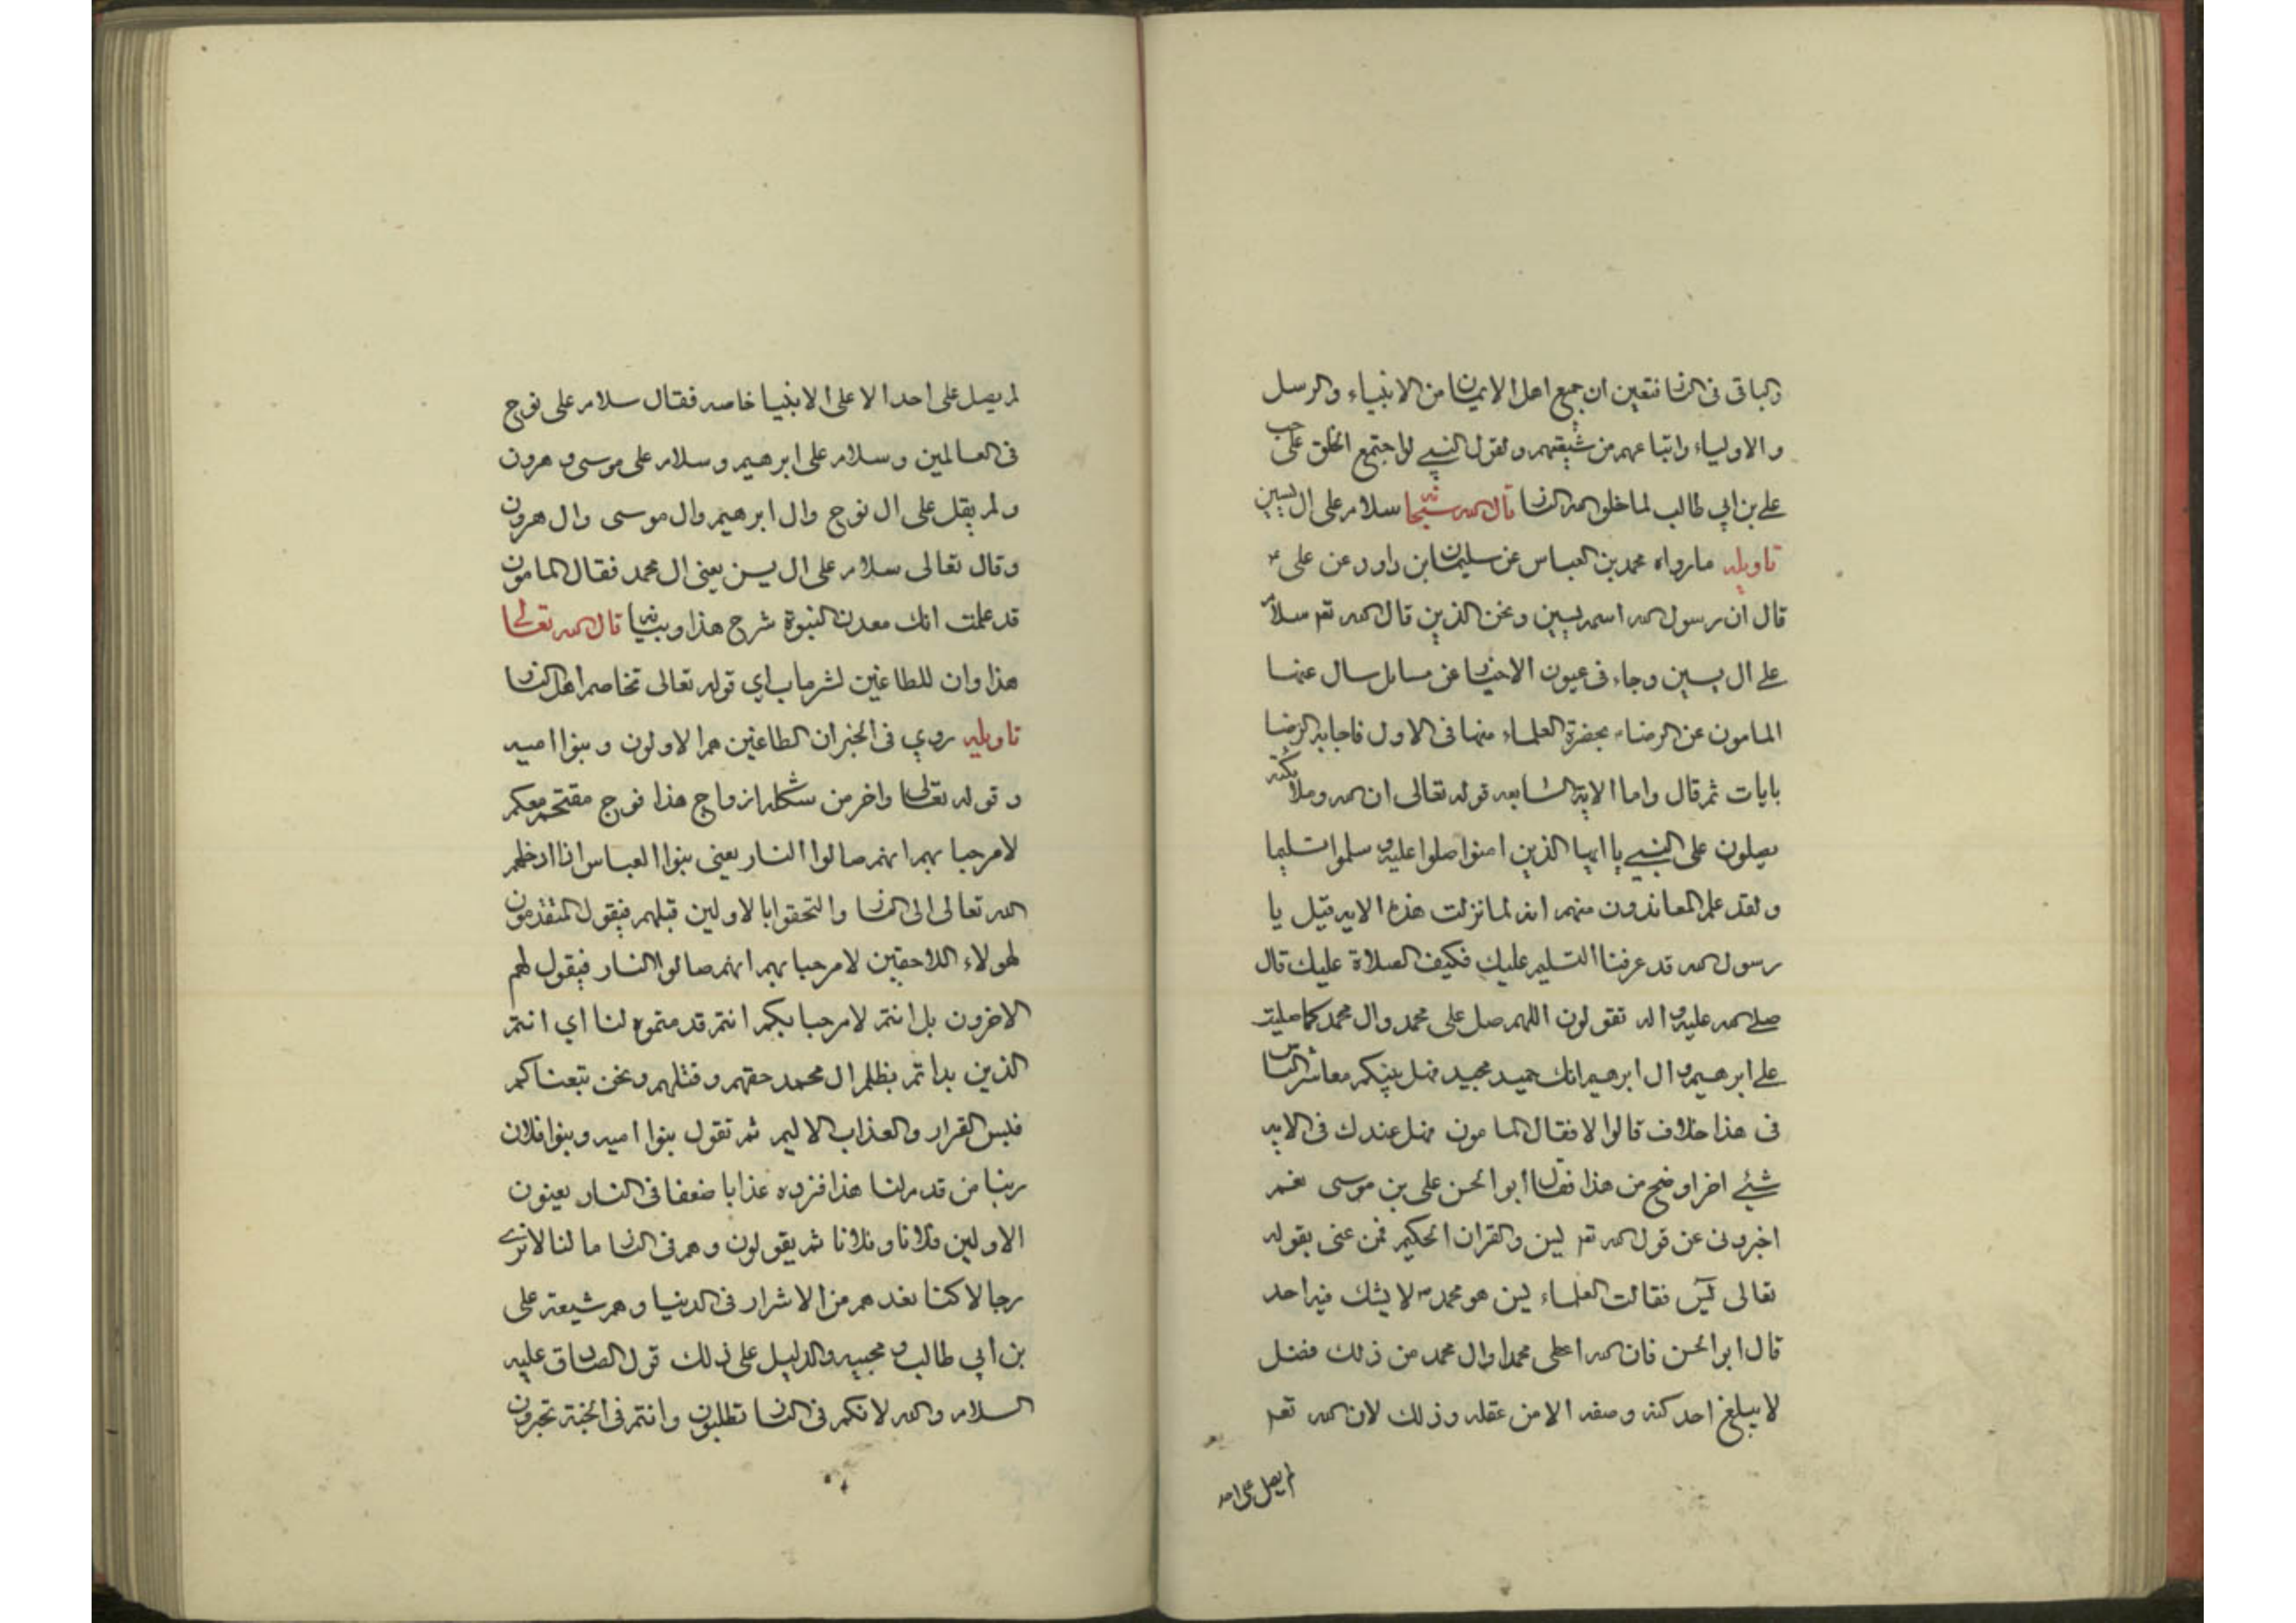 والباقى فى النار فتعين ان جميع اهل الايمان من الانبياء والرسل
والاولياء واتباعهم من شيعتهم ولقول النبي لو اجتمع الخلق على حب
علي بن ابي طالب لما خلق الله النار قال الله سبحانه سلام على ال يسين
تاويله ما رواه محمد بن العباس عن سليمان بن داود عن على ع
قال ان رسول الله اسمه يسين ونحن الذين قال الله تعم سلام
علي ال يسين وجاء فى عيون الاخبار عن مسايل سال عنها
المامون عن الرضاء بحضرة العلماء منها فى الاول فاجابه الرضا
بايات ثم قال واما الاية السابعه قوله تعالى ان الله وملائكته
يصلون على النبي يا ايها الذين امنوا صلوا عليه وسلموا تسليما
ولقد علم المعاندون منهم انه لما نزلت هذه الايه قيل يا
رسول الله قد عرفنا التسليم عليك فكيف الصلاة عليك قال
صلي الله عليه واله تقولون اللهم صل على محمد وال محمد كما صليت
علي ابرهيم وال ابرهيم انك حميد مجيد فهل بينكم معاشر الناس
فى هذا خلاف قالوا لا فقال المامون فهل عندك فى الايه
شيئ اخر اوضح من هذا فقال ابو الحسن على بن موسى نعم
اخبرونى عن قول الله تعم يس والقران الحكيم فمن عنى بقوله
تعالى يس فقالت العلماء يس هو محمد ص لا يشك فيه احد
قال ابو الحسن فان الله اعطى محمدا وال محمد من ذلك فضل
لا يبلغ احد كنه وصفه الا من عقله وذلك لان الله تعم
لم يصل على احد
لم يصل على احد الا على الانبيا خاصه فقال سلام على نوح
فى العالمين وسلام على ابرهيم وسلام على موسى وهرون
ولم يقل على ال نوح وال ابرهيم وال موسى وال هرون
وقال تعالى سلام على ال يسن يعنى ال محمد فقال المامون
قد علمت انك معدن النبوة شرح هذا وبيانه قال الله تعالى
هذا وان للطاغين لشر ماب اي قوله تعالى تخاصم اهل النار
تاويله روي فى الخبر ان الطاغين هم الاولون وبنوا اميه
وقوله تعالى واخر من شكله ازواج هذا فوج مقتحم معكم
لا مرحبا بهم انهم صالوا النار يعنى بنوا العباس اذا ادخلهم
الله تعالى الى النار والتحقوا بالاولين قبلهم فيقول المتقدمون
لهولاء اللاحقين لا مرحبا بهم انهم صالوا النار فيقول لهم
الاخرون بل انتم لا مرحبا بكم انتم قدمتموه لنا اي انتم
الذين بداتم بظلم ال محمد حقهم وقتلهم ونحن تبعناكم
فبس القرار والعذاب الاليم ثم تقول بنوا اميه وبنوا فلان
ربنا من قدم لنا هذا فزده عذابا ضعفا فى النار يعنون
الاولين فلانا وفلانا ثم يقولون وهم فى النار ما لنا لا نرى
رجالا كنا نعدهم من الاشرار فى الدنيا وهم شيعة على
بن ابي طالب ومحبيه والدليل على ذلك قول الصادق عليه
السلام والله لانكم فى النار تطلبون وانتم فى الجنة تحبرون